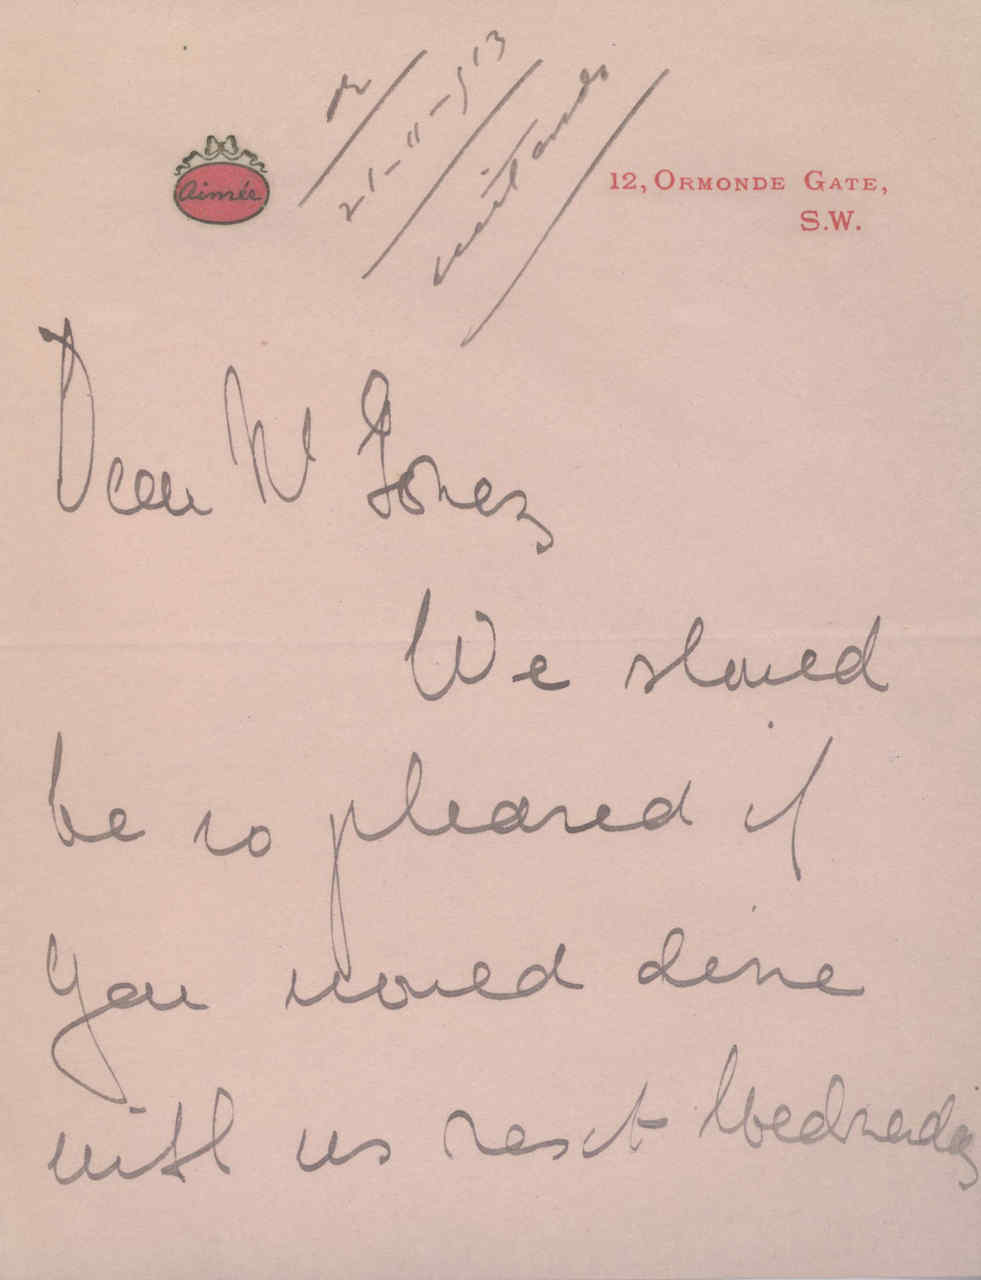 Aimée
21-11-913
12, ORMONDE GATE,
S.W.
Dear Mr Gomez
We should
be so pleased if
you would dine
with us next Wednesday